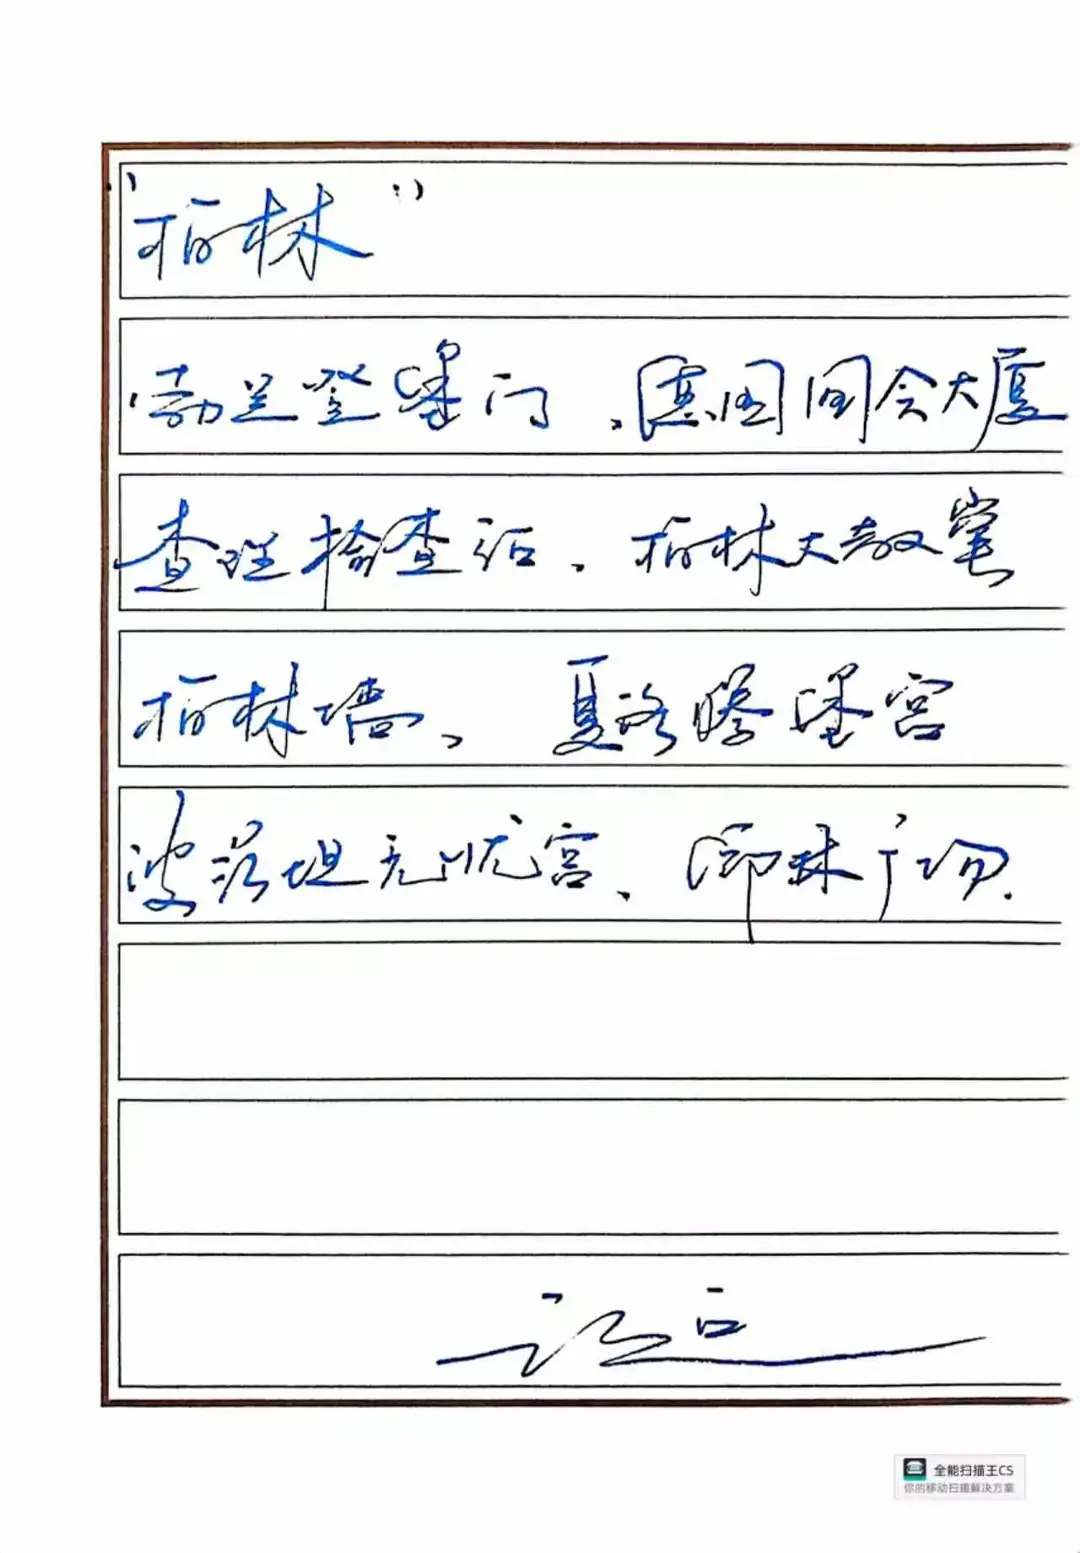 “柏林”
勃兰登堡门、德国国会大厦
查理检查站、柏林大教堂
柏林墙、夏洛腾堡宫
波茨坦无忧宫、御林广场.
全能扫描王CS
你的移动扫描解决方案